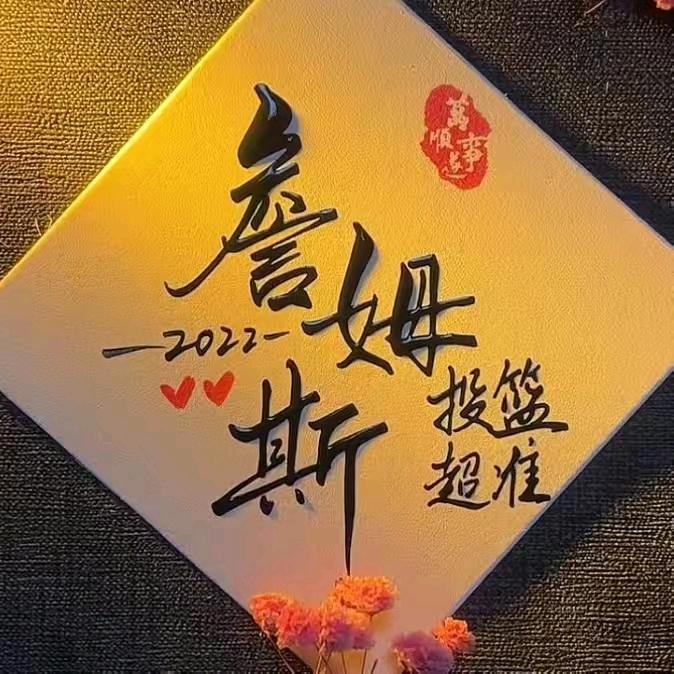 詹姆斯
-2022-
投篮
超准
萬事
順遂